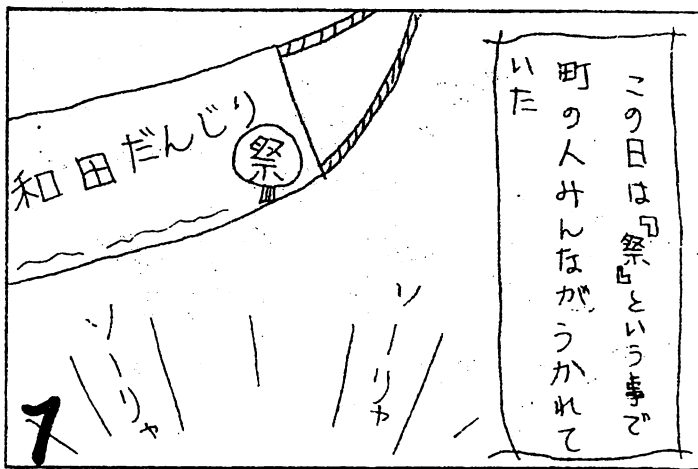 この日は『祭』という事で
町の人みんながうかれて
いた
和田だんじり
祭
ソーリャ
ソーリャ
1